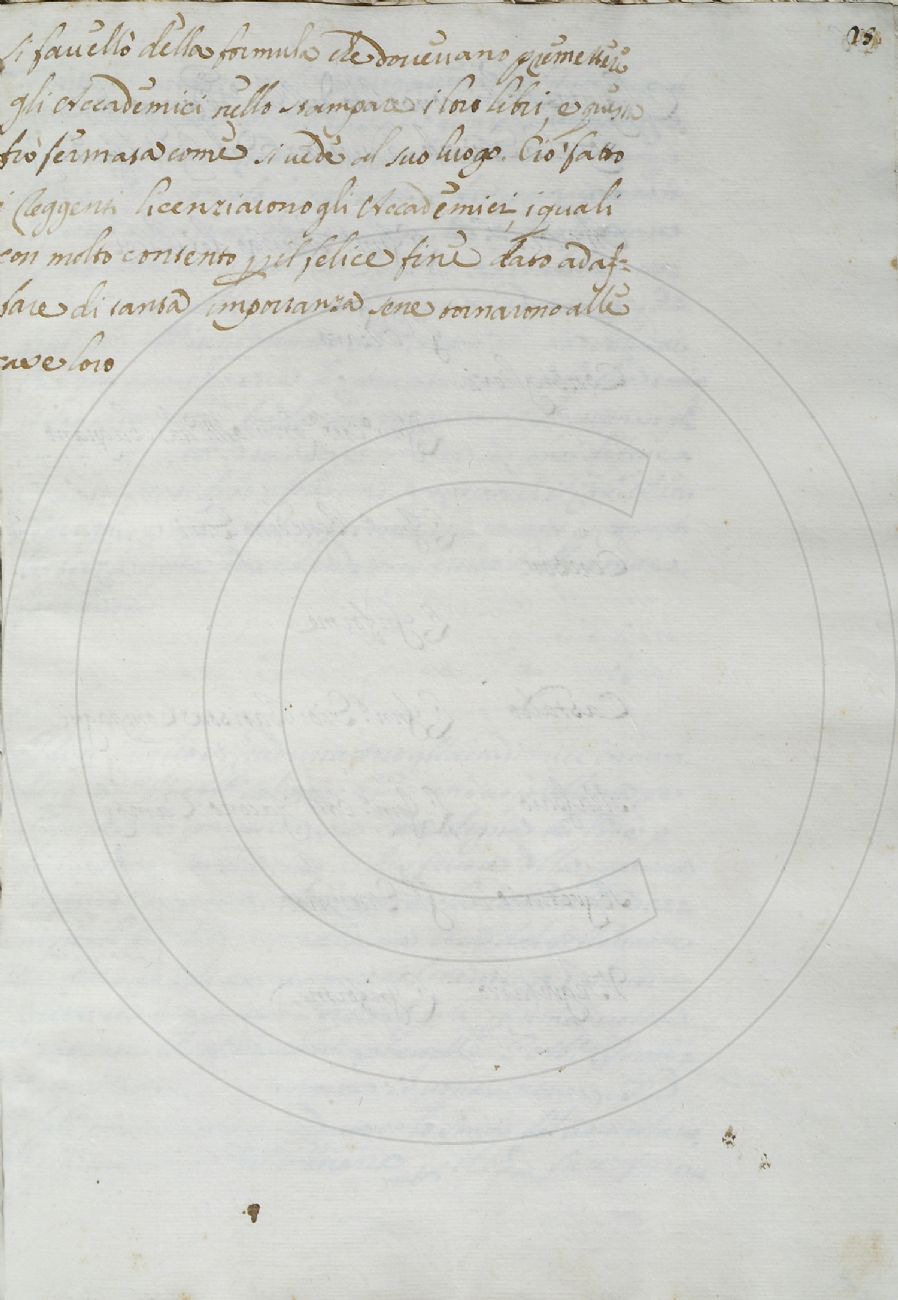 25
si favellò della formula che dovevano premettere
gli Accademici nello stampare i loro libri, e questa
fù fermata come si vede al suo luogo. Ciò fatto
i Reggenti licenziarono gli Accademici, i quali
con molto contento pel felice fine dato ad af-
fare di tanta importanza sene tornarono alle
case loro